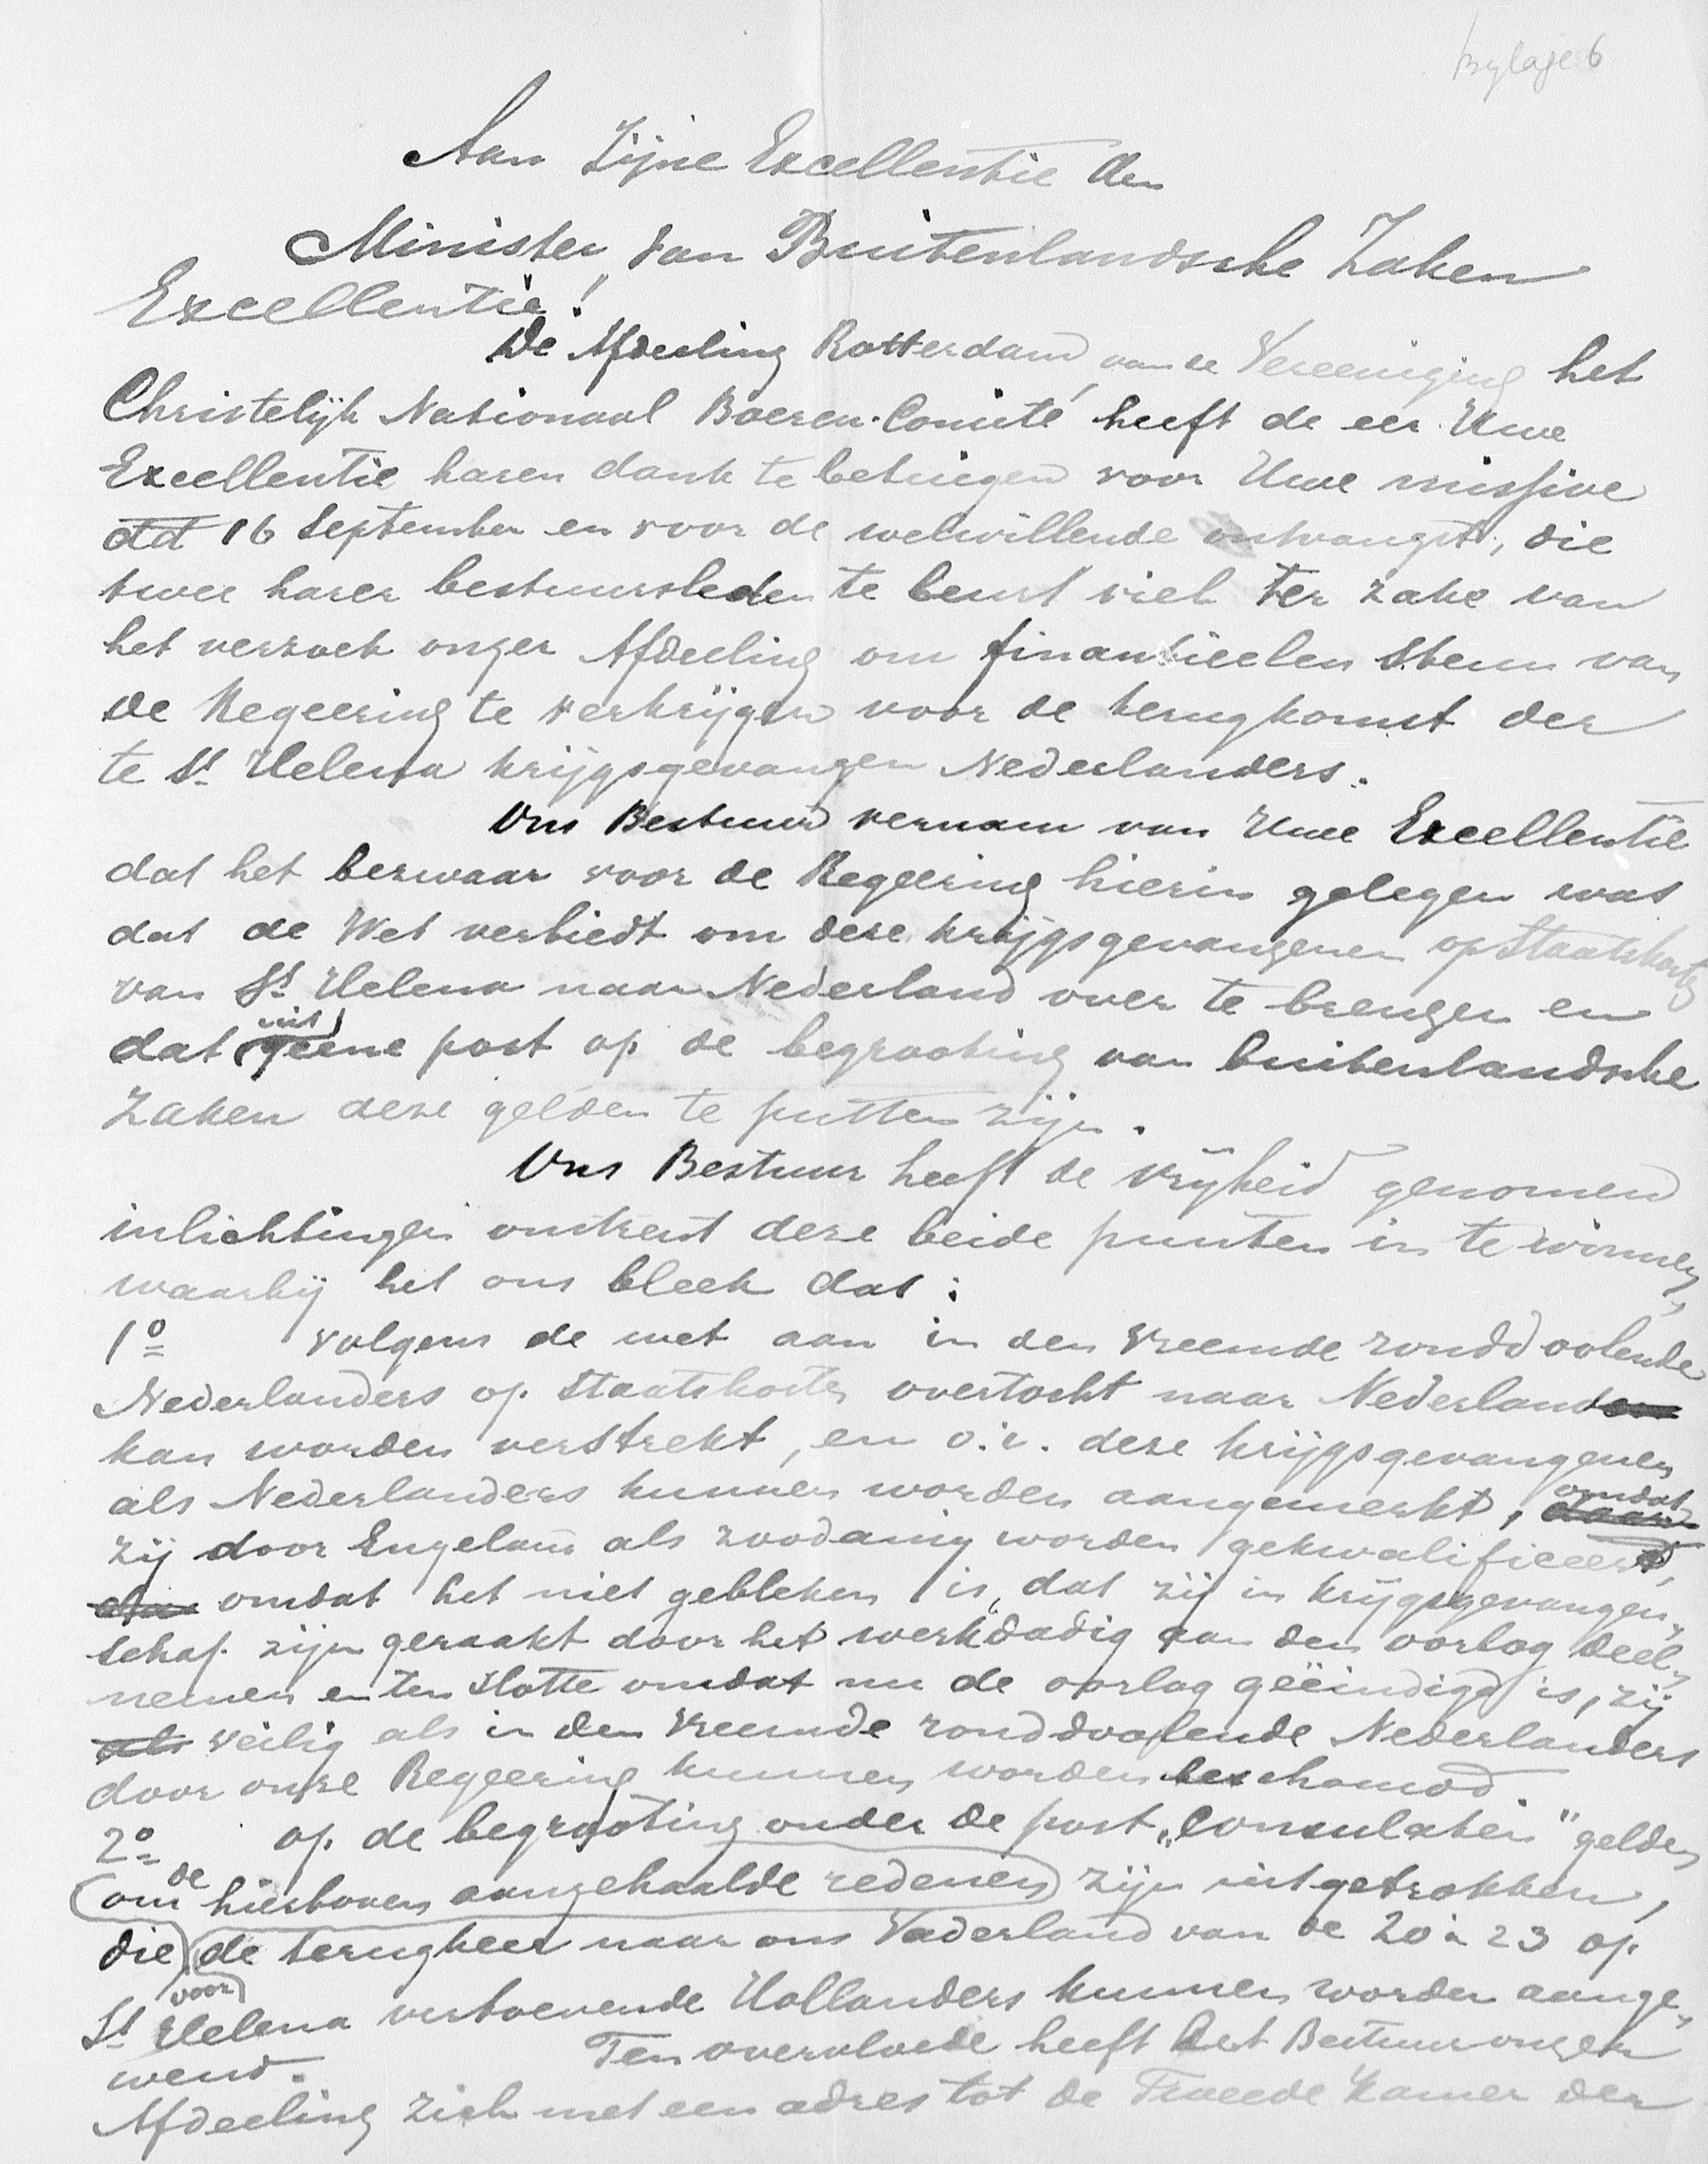 bylage 6
Aan Zijne Excellentie den
Minister van Buitenlandsche Zaken
Excellentie!
De Afdeeling Rotterdam van de Vereeniging het
Christelijk Nationaal Boeren-Comité heeft de eer Uwe
Excellentie haren dank te betuigen voor Uwe missive
dd 16 September en voor de welwillende ontvangst, die
twee harer bestuursleden te beurt viel ter zake van
het verzoek onzer Afdeeling om financieelen steun van
de Regeering te verkrijgen voor de terugkomst der
te St. Helena krijgsgevangen Nederlanders.
Ons Bestuur vernam van Uwe Excellentie
dat het bezwaar voor de Regeering hierin gelegen was
dat de Wet verbiedt om deze krijgsgevangenen op Staatskosten
van St. Helena naar Nederland over te brengen en
dat uit geene post op de begrooting van buitenlandsche
Zaken deze gelden te putten zijn.
Ons Bestuur heeft de vrijheid genomen
inlichtingen omtrent deze beide punten in te winnen,
waarbij het ons bleek dat:
1o volgens de wet aan in den vreemde ronddoolende
Nederlanders op Staatskosten overtocht naar Nederland
kan worden verstrekt, en o.i. deze krijgsgevangenen
als Nederlanders kunnen worden aangemerkt, daar omdat
zij door Engeland als zoodanig worden gekwalificeerd,
omdat het niet gebleken is, dat zij in krijgsgevangen-
schap zijn geraakt door het werkdadig aan den oorlog deel-
nemen en ten slotte omdat nu de oorlog geëindigd is, zij
als veilig als in den vreemde ronddoolende Nederlanders
door onze Regeering kunnen worden beschouwd
2o op de begrooting onder de post "Consulaten" gelden
om de hierboven aangehaalde redenen zijn uitgetrokken,
die voor de terugkeer naar ons Vaderland van de 20 à 23 op
St. Helena vertoevende Hollanders kunnen worden aange-
wend. Ten overvloede heeft het Bestuur onzer
Afdeeling zich met een adres tot de Tweede Kamer der